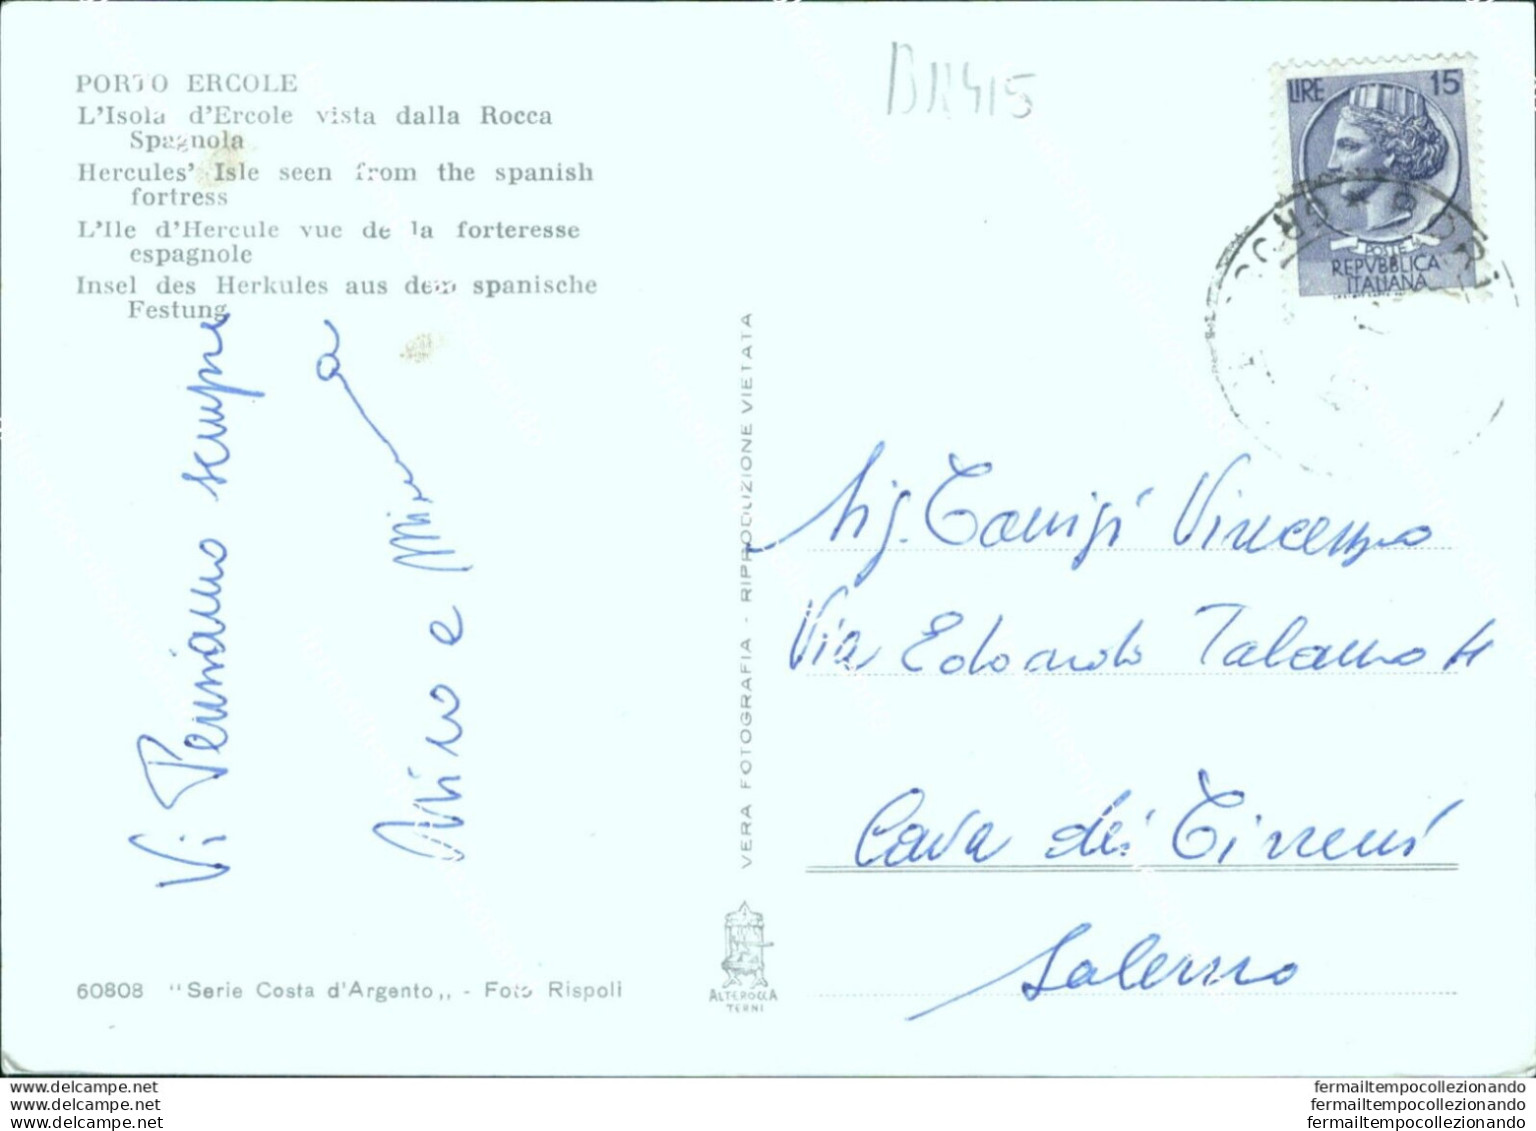 PORTO ERCOLE
L'Isola d'Ercole vista dalla Rocca
Spagnola
Hercules' Isle seen from the spanish
fortress
L'Ile d'Hercule vue de la forteresse
espagnole
Insel des Herkules aus dem spanische
Festung
Vi Pensiamo sempre
Nino e
60808 "Serie Costa d'Argento„ - Foto Rispoli
VERA FOTOGRAFIA - RIPRODUZIONE VIETATA
ALTEROCCA
TERNI
BR415
LIRE 15
POSTE
REPVBBLICA
ITALIANA
Sig. Vincenzo
Via Edoardo Talamo
Cava dei Tirreni
Salerno
www.delcampe.net
www.delcampe.net
www.delcampe.net
fermailtempocollezionando
fermailtempocollezionando
fermailtempocollezionando